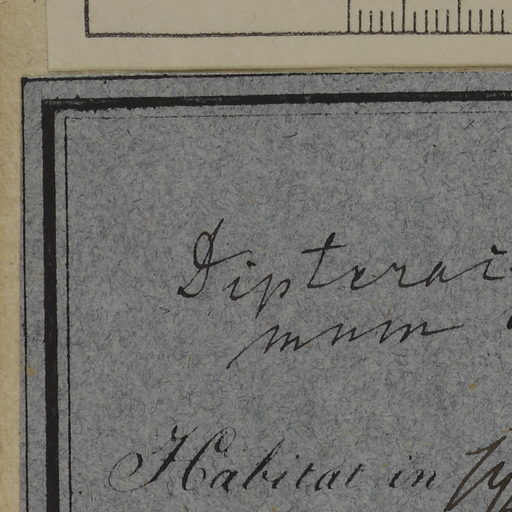 Dipterac
mum
Habitat in